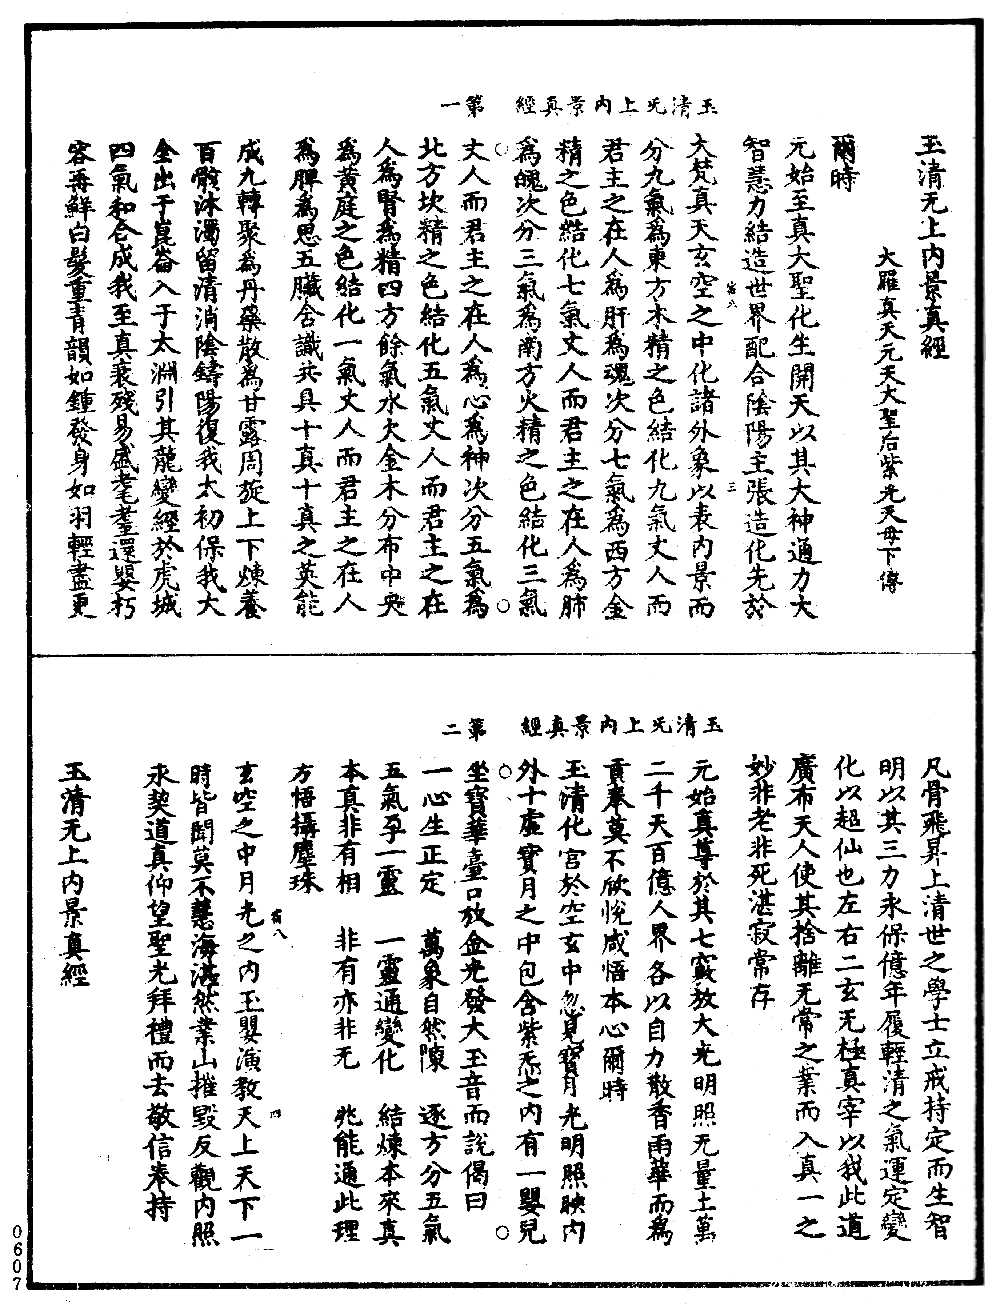 玉清无上內景真經　第一
玉清无上內景真經
大羅真天元天大聖后紫光天母下傳
爾時
元始至真大聖化生開天以其大神通力大
智慧力結造世界配合陰陽主張造化先於
宿八　三
大梵真天玄空之中化諸外象以表內景而
分九氣為東方木精之色結化九氣丈人而
君主之在人為肝為魂次分七氣為西方金
精之色結化七氣丈人而君主之在人為肺
為魄次分三氣為南方火精之色結化三氣
丈人而君主之在人為心為神次分五氣為
北方坎精之色結化五氣丈人而君主之在
人為腎為精四方餘氣水火金木分布中央
為黃庭之色結化一氣丈人而君主之在人
為脾為思五臟含識共具十真十真之英能
成九轉聚為丹藥散為甘露周旋上下煉養
百骸沐濁留清消陰鑄陽復我太初保我大
全出于崑崙入于太淵引其龍變經於虎城
四氣和合成我至真衰殘易盛耄耋還嬰朽
容再鮮白髮重青韻如鍾發身如羽輕盡更
玉清无上內景真經　第二
凡骨飛昇上清世之學士立戒持定而生智
明以其三力永保億年履輕清之氣運定變
化以超仙也左右二玄无極真宰以我此道
廣布天人使其捨離无常之業而入真一之
妙非老非死湛寂常存
元始真尊於其七竅放大光明照无量土萬
二千天百億人界各以自力散香雨華而為
貢奉莫不欣悅咸悟本心爾時
玉清化宮於空玄中忽見寶月光明照映內
外十虛寶月之中包含紫炁之內有一嬰兒
坐寶華臺口放金光發大玉音而說偈曰
一心生正定　萬象自然隙　逐方分五氣
五氣孕一靈　一靈通變化　結煉本來真
本真非有相　非有亦非无　兆能通此理
方悟攝塵珠
宿八　四
玄空之中月光之內玉嬰演教天上天下一
時皆聞莫不慧海湛然業山摧毀反觀內照
永契道真仰望聖光拜禮而去敬信奉持
玉清无上內景真經
0607